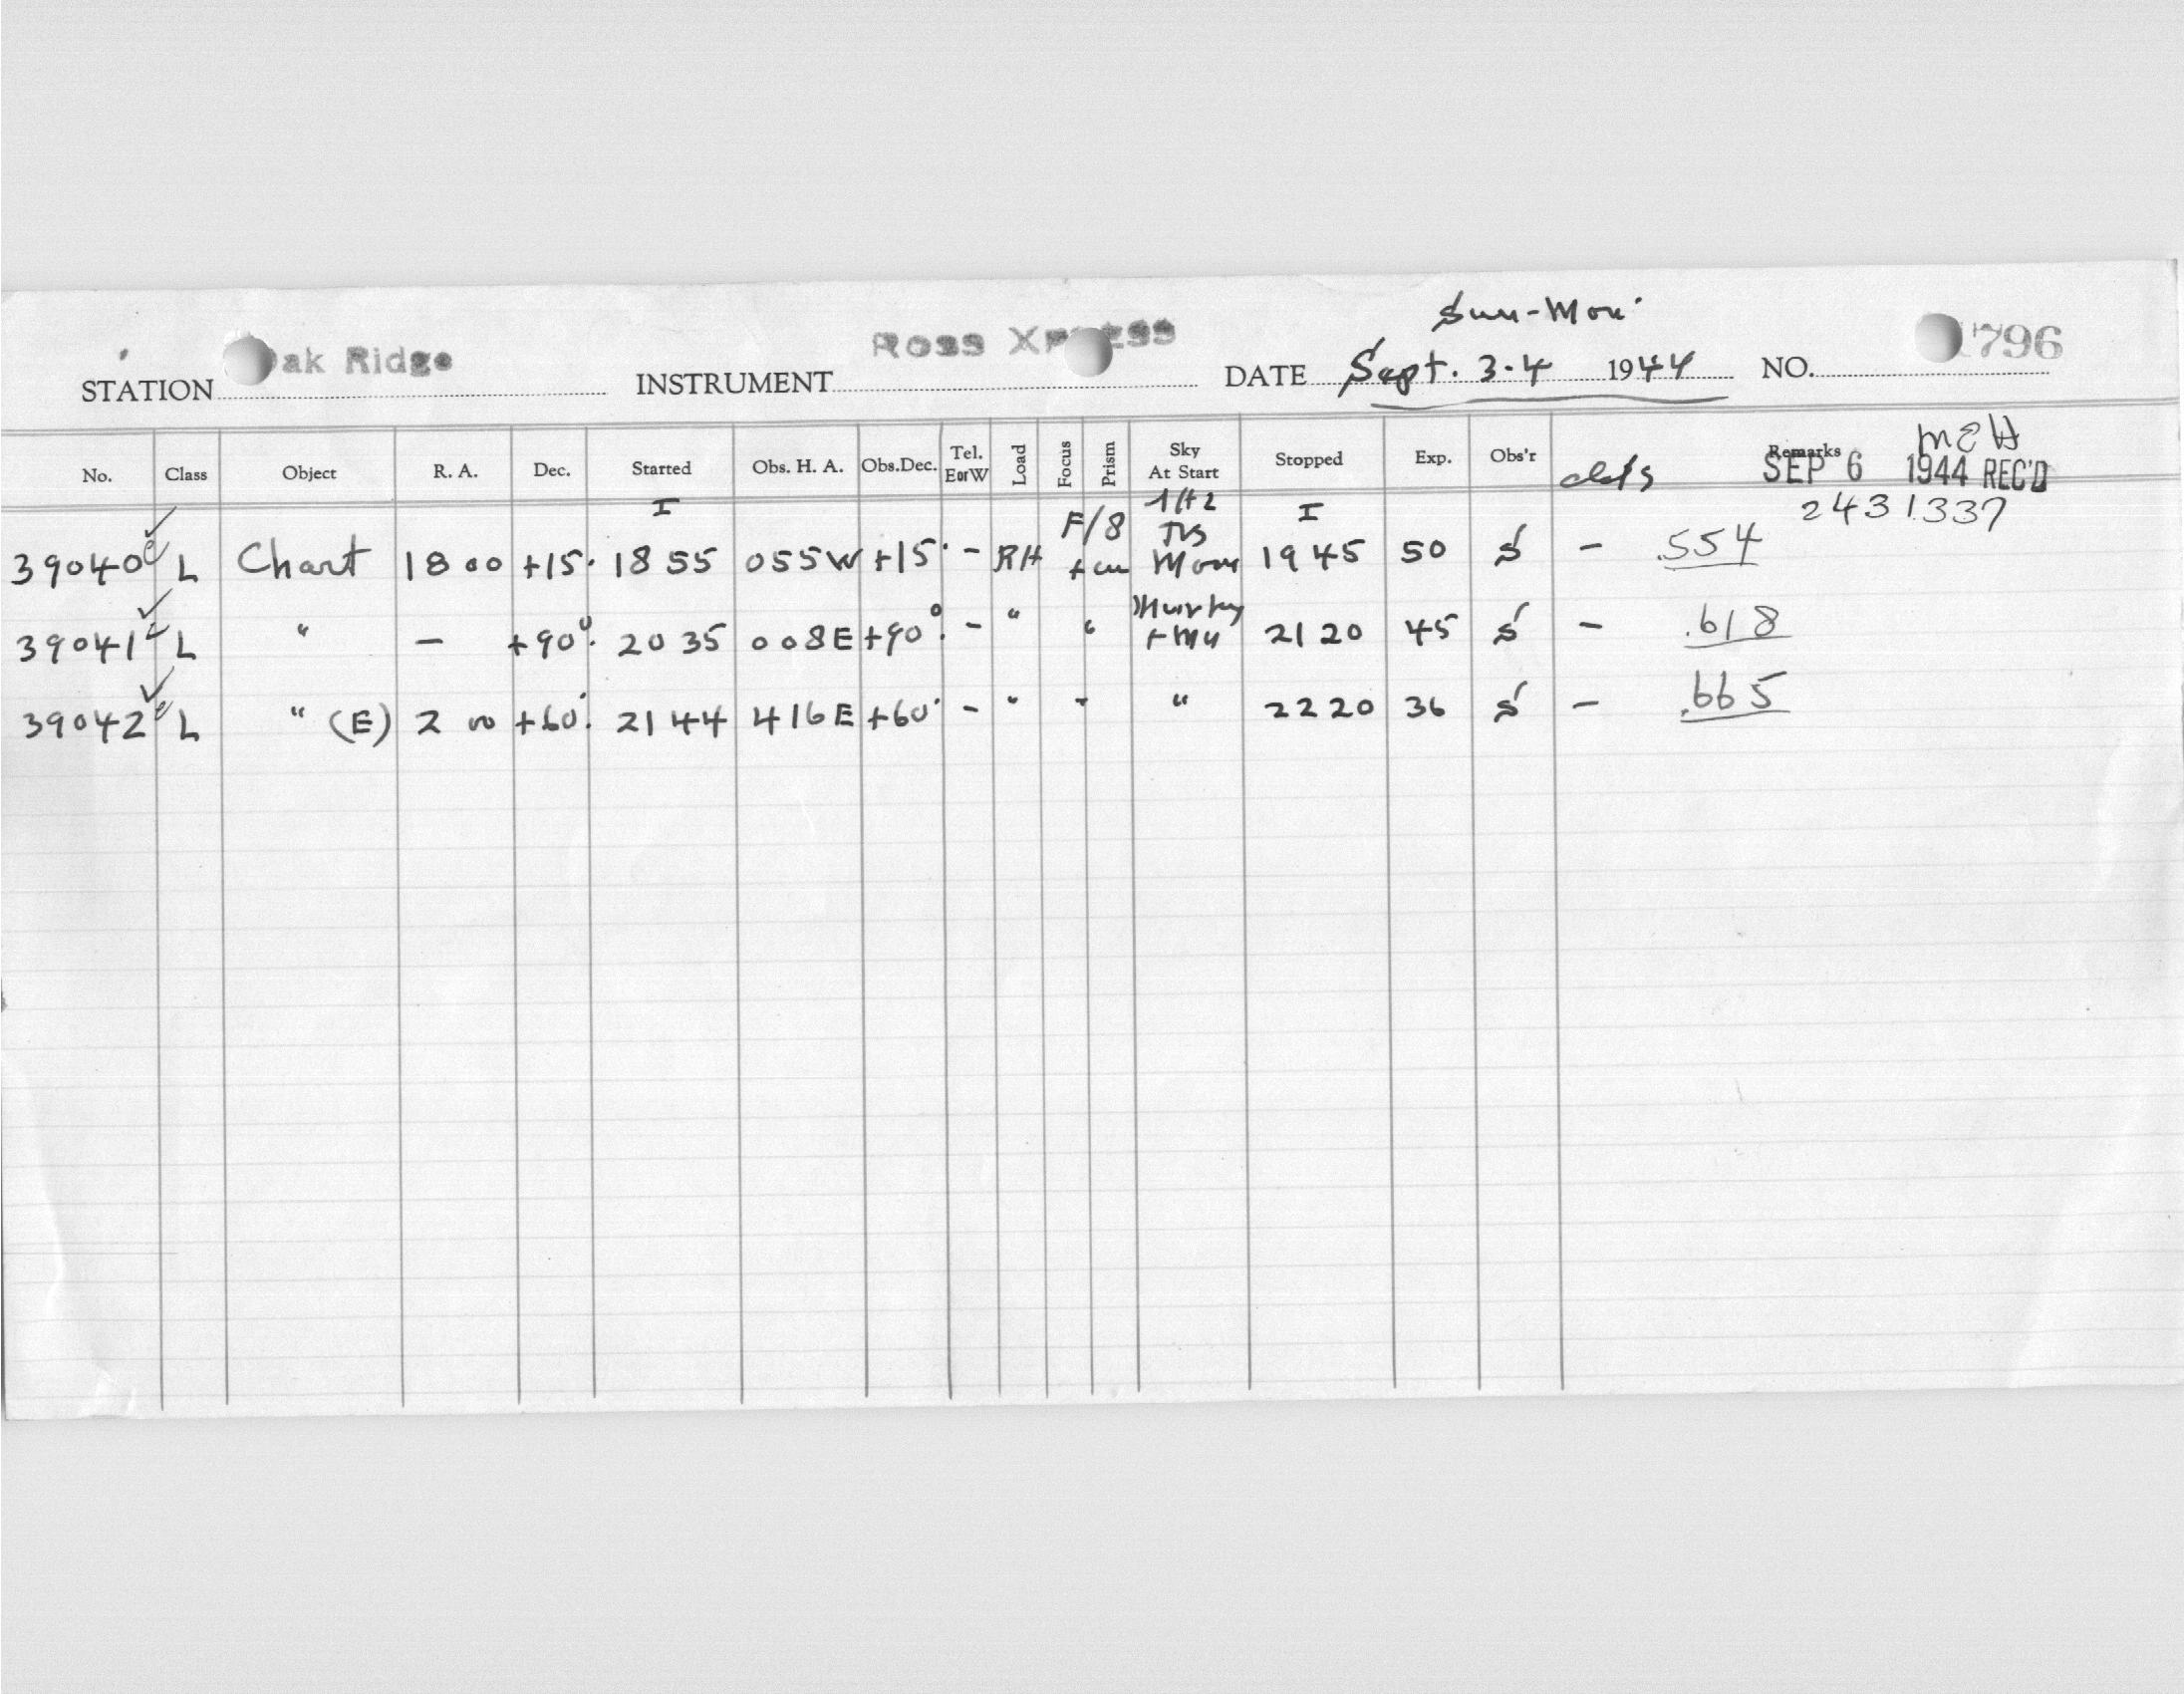 Sun-Mon.
STATION ak Ridge INSTRUMENT Ross Xpress DATE Sept. 3-4 1944 NO. 796
No. Class Object R. A. Dec. Started Obs. H. A. Obs.Dec. Tel. EorW Load Focus Prism Sky At Start Stopped Exp. Obs'r Remarks
MEH
SEP 6 1944 REC'D
2431337
39040 L Chart 18 00 +15° I 18 55 055W +15° - RH F/8 Moon I 19 45 50 S - .554
39041 L " - +90° 20 35 008E +90° - " " Murky 21 20 45 S - .618
39042 L " (E) 2 00 +60° 21 44 416E +60° - " " " 22 20 36 S - .665